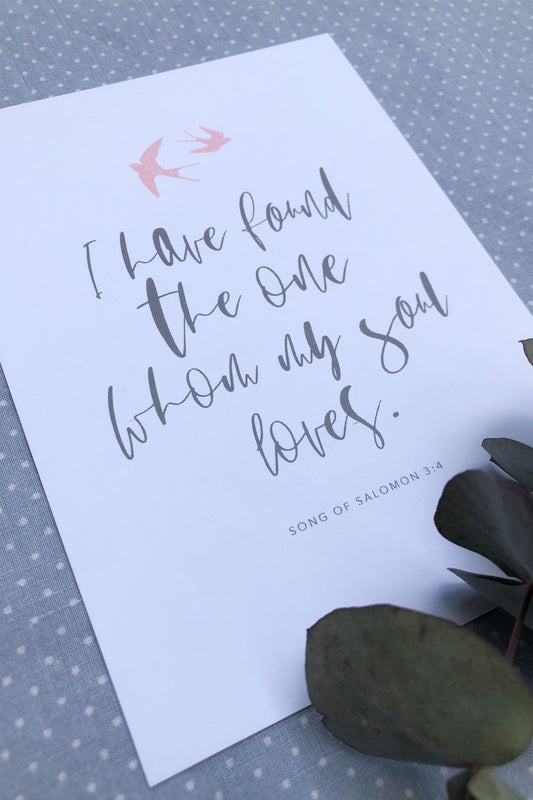 I have found
the one
whom my soul
loves.
SONG OF SALOMON 3:4